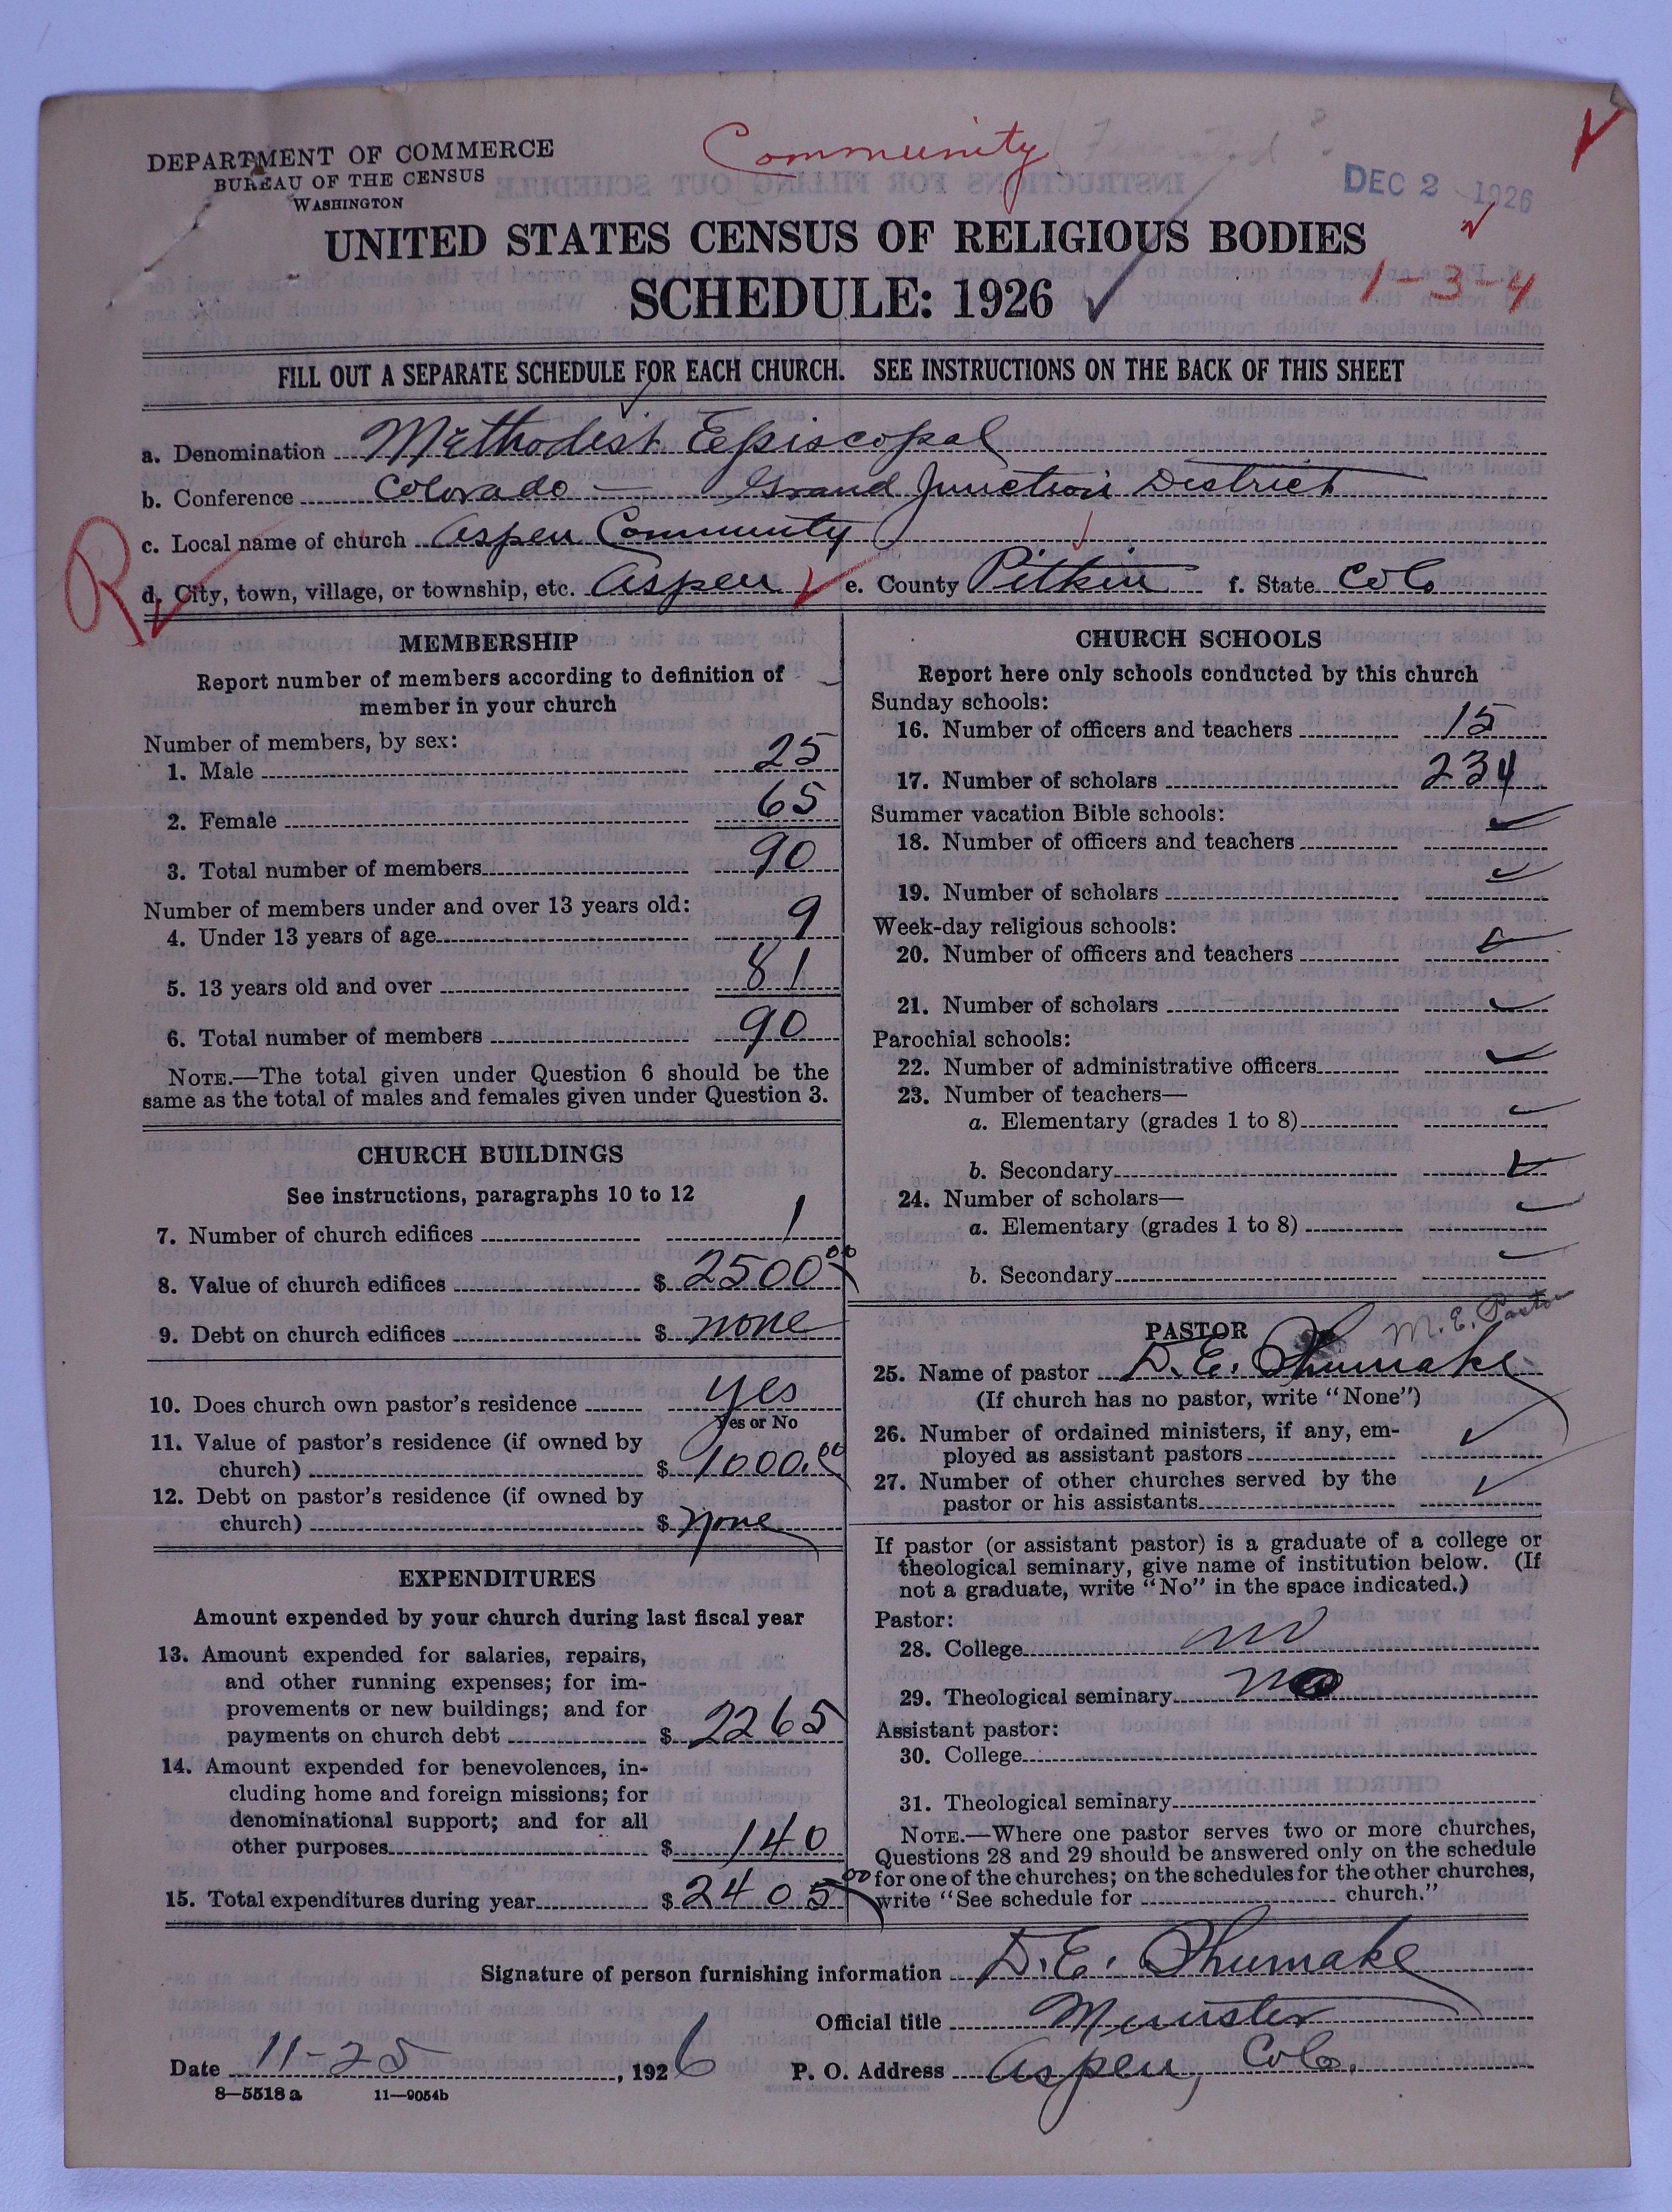 Community
DEPARTMENT OF COMMERCE
BUREAU OF THE CENSUS
WASHINGTON
DEC 2 1926
UNITED STATES CENSUS OF RELIGIOUS BODIES
SCHEDULE: 1926
1-3-4
FILL OUT A SEPARATE SCHEDULE FOR EACH CHURCH. SEE INSTRUCTIONS ON THE BACK OF THIS SHEET
a. Denomination Methodist Episcopal
b. Conference Colorado — Grand Junction District
c. Local name of church Aspen Community
R
d. City, town, village, or township, etc. Aspen e. County Pitkin f. State Colo
MEMBERSHIP
Report number of members according to definition of
member in your church
Number of members, by sex:
1. Male 25
2. Female 65
3. Total number of members 90
Number of members under and over 13 years old:
4. Under 13 years of age 9
5. 13 years old and over 81
6. Total number of members 90
NOTE.—The total given under Question 6 should be the
same as the total of males and females given under Question 3.
CHURCH BUILDINGS
See instructions, paragraphs 10 to 12
7. Number of church edifices 1
8. Value of church edifices $ 2500 00
9. Debt on church edifices $ none
10. Does church own pastor's residence yes
Yes or No
11. Value of pastor's residence (if owned by
church) $ 1000.00
12. Debt on pastor's residence (if owned by
church) $ none
EXPENDITURES
Amount expended by your church during last fiscal year
13. Amount expended for salaries, repairs,
and other running expenses; for im-
provements or new buildings; and for
payments on church debt $ 2265
14. Amount expended for benevolences, in-
cluding home and foreign missions; for
denominational support; and for all
other purposes $ 140
15. Total expenditures during year $ 2405 00
CHURCH SCHOOLS
Report here only schools conducted by this church
Sunday schools:
16. Number of officers and teachers 15
17. Number of scholars 234
Summer vacation Bible schools:
18. Number of officers and teachers
19. Number of scholars
Week-day religious schools:
20. Number of officers and teachers
21. Number of scholars
Parochial schools:
22. Number of administrative officers
23. Number of teachers—
a. Elementary (grades 1 to 8)
b. Secondary
24. Number of scholars—
a. Elementary (grades 1 to 8)
b. Secondary
PASTOR M. E. Pastor
25. Name of pastor D. E. Shumake
(If church has no pastor, write "None")
26. Number of ordained ministers, if any, em-
ployed as assistant pastors
27. Number of other churches served by the
pastor or his assistants
If pastor (or assistant pastor) is a graduate of a college or
theological seminary, give name of institution below. (If
not a graduate, write "No" in the space indicated.)
Pastor:
28. College no
29. Theological seminary no
Assistant pastor:
30. College
31. Theological seminary
NOTE.—Where one pastor serves two or more churches,
Questions 28 and 29 should be answered only on the schedule
for one of the churches; on the schedules for the other churches,
write "See schedule for church."
Signature of person furnishing information D. E. Shumake
Official title Minister
Date 11-25, 1926 P. O. Address Aspen, Colo.
8—5518 a 11—9054b